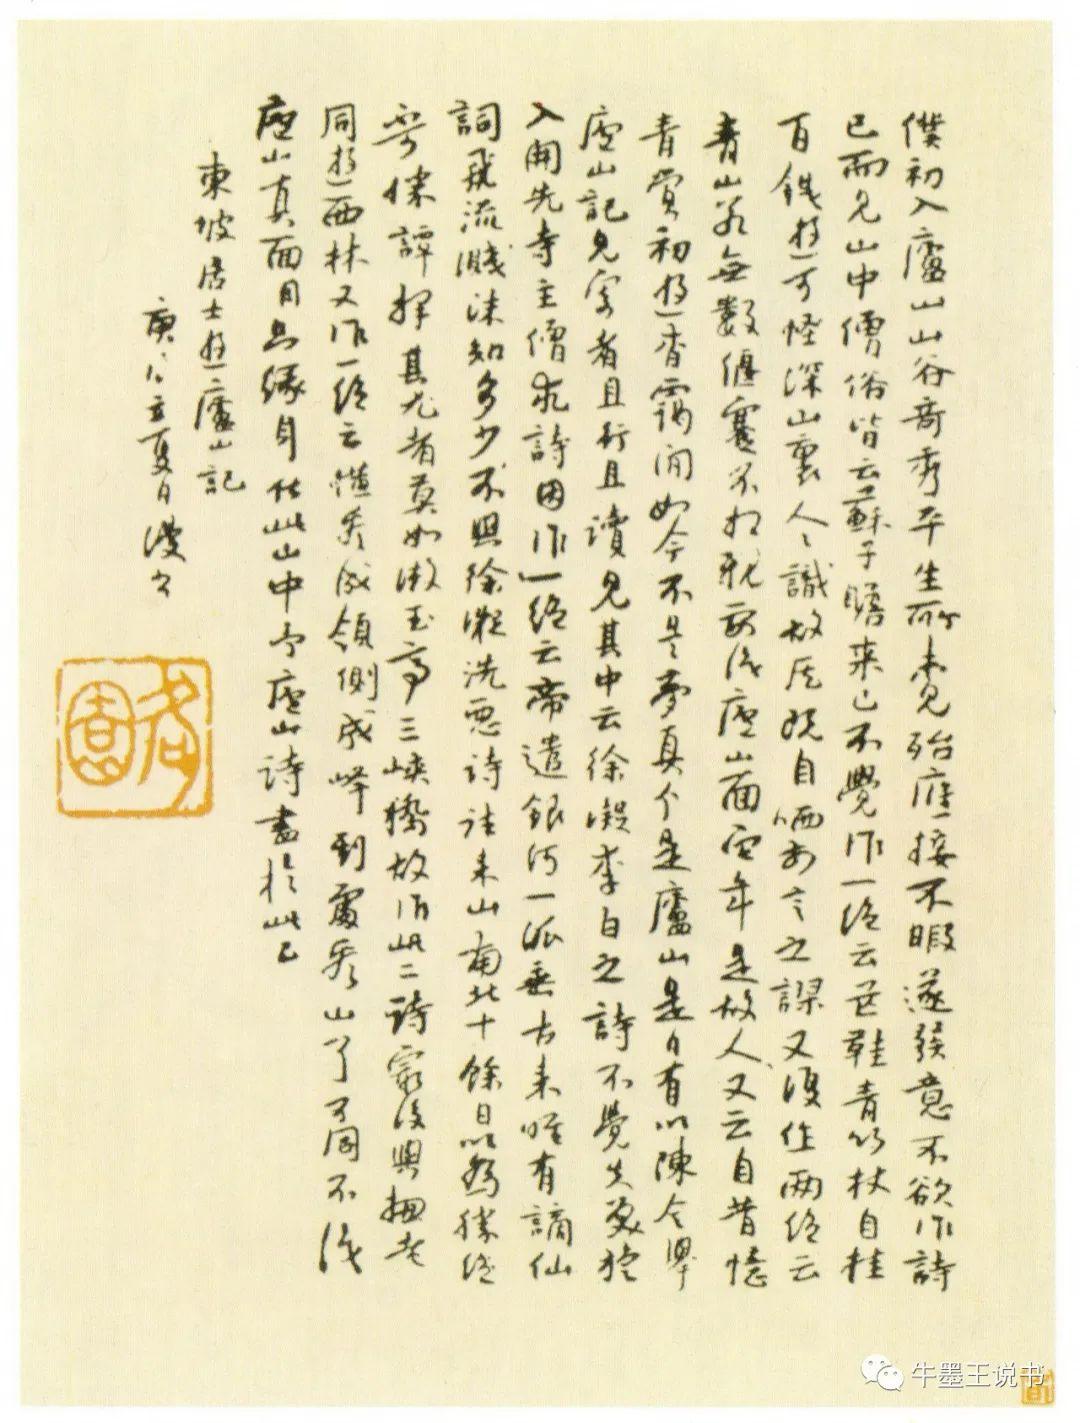 僕初入廬山山谷奇秀平生所未見殆應接不暇遂發意不欲作詩
已而見山中僧俗皆云蘇子瞻來已不覺作一絕云芒鞋青竹杖自挂
百錢遊可怪深山裏人人識故侯既自哂前言之謬又復作兩絕云
青山若無數偃蹇不相親要識廬山面它年是故人又云自昔憶
青賞初遊杳靄間如今不是夢真个是廬山是日有以陳令舉
廬山記見寄者且行且讀見其中云徐凝李白之詩不覺失笑旋
入開先寺主僧求詩因作一絕云帝遣銀河一派垂古來惟有謫仙
詞飛流濺沫知多少不與徐凝洗惡詩往來山南北十餘日以爲勝絕
不可勝譚擇其尤者莫如漱玉亭三峽橋故作此二詩最後與摠老
同遊西林又作一絕云橫看成領側成峰到處看山了不同不識
廬山真面目只緣身在此山中予廬山詩盡於此已
東坡居士遊廬山記
庚子立夏日漫書
牛墨王说书